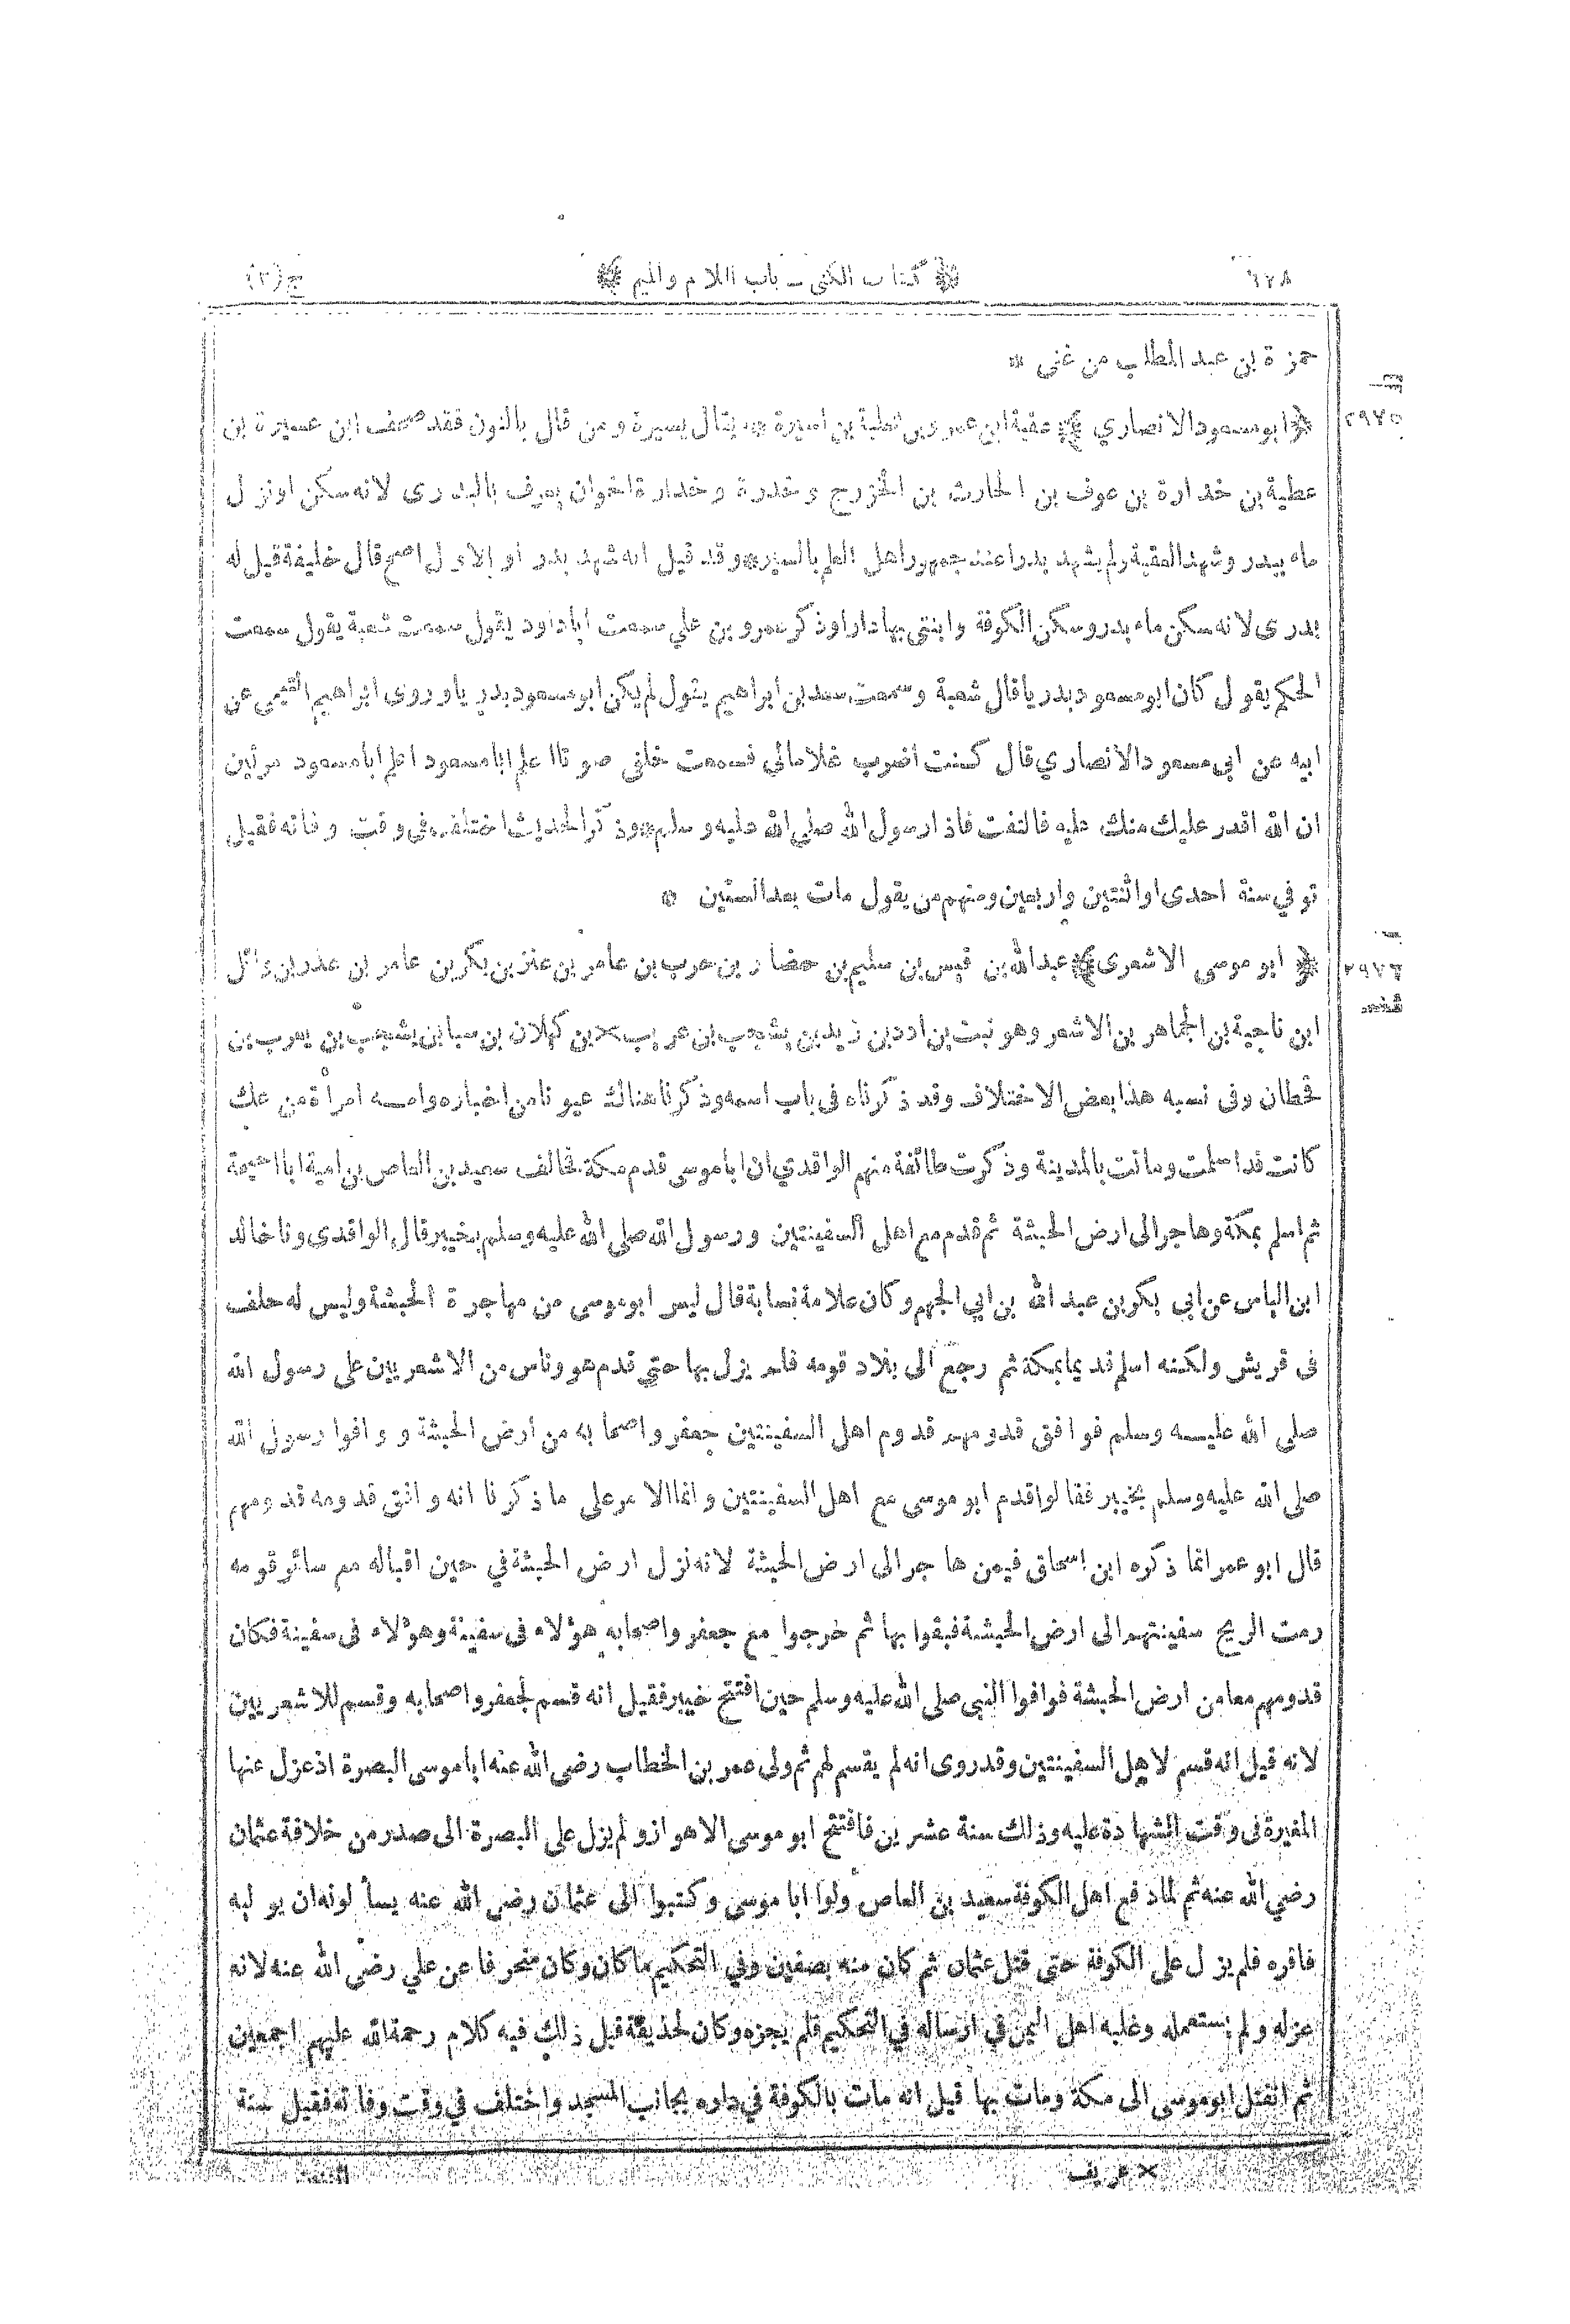 ٦٢٨ ﴿ كتاب الكنى ــ باب اللام والميم ﴾ ج (٢)
حمزة بن عبد المطلب من غنى *
٢٩٧٥ ﴿ ابو مسعود الانصاري ﴾ عقبة ابن عمرو بن ثعلبة بن اسيرة * يقال يسيرة ومن قال بالنون فقد صحف ابن عسيرة بن
عطية بن خدارة بن عوف بن الحارث بن الخزرج وخدرة وخدارة اخوان يعرف بالبدرى لانه سكن او نزل
ماء ببدر وشهد العقبة ولم يشهد بدرا عند جمهور اهل العلم بالسير * وقد قيل انه شهد بدرا والاول اصح قال خليفة قيل له
بدرى لانه سكن ماء بدر وسكن الكوفة وابتنى بها دارا وذكر عمرو بن علي سمعت ابا داود يقول سمعت شعبة يقول سمعت
الحكم يقول كان ابو مسعود بدريا قال شعبة وسمعت سعد بن ابراهيم يقول لم يكن ابو مسعود بدريا وروى ابراهيم التيمى عن
ابيه عن ابى مسعود الانصاري قال كنت اضرب غلاما لي فسمعت خلفى صوتا اعلم ابا مسعود اعلم ابا مسعود مرتين
ان الله اقدر عليك منك عليه فالتفت فاذا رسول الله صلى الله عليه وسلم * وذكر الحديث اختلف فى وقت وفاته فقيل
توفي سنة احدى او اثنتين واربعين ومنهم من يقول مات بعد الستين *
٢٩٧٦ ﴿ ابو موسى الاشعرى ﴾ عبد الله بن قيس بن سليم بن حضار بن حرب بن عامر بن عنز بن بكر بن عامر بن عذر بن وائل
ابن ناجية بن الجماهر بن الاشعر وهو نبت بن ادد بن زيد بن يشجب بن عريب × بن كهلان بن سبا بن يشجب بن يعرب بن
قحطان وفى نسبه هذا بعض الاختلاف وقد ذكرناه فى باب اسمه وذكرنا هناك عيونا من اخباره وامه امرأة من عك
كانت قد اسلمت وماتت بالمدينة وذكرت طائفة منهم الواقدي ان ابا موسى قدم مكة فحالف سعيد بن العاص بن امية ابا احيحة
ثم اسلم بمكة وهاجر الى ارض الحبشة ثم قدم مع اهل السفينتين ورسول الله صلى الله عليه وسلم بخيبر قال الواقدى ونا خالد
ابن الياس عن ابي بكر بن عبد الله بن ابي الجهم وكان علامة نسابة قال ليس ابو موسى من مهاجرة الحبشة وليس له حلف
فى قريش ولكنه اسلم قديما بمكة ثم رجع الى بلاد قومه فلم يزل بها حتى قدم هو وناس من الاشعريين على رسول الله
صلى الله عليه وسلم فوافق قدومهم قدوم اهل السفينتين جعفر واصحابه من ارض الحبشة ووافوا رسول الله
صلى الله عليه وسلم بخيبر فقالوا قدم ابو موسى مع اهل السفينتين وانما الامر على ما ذكرنا انه وافق قدومه قدومهم
قال ابو عمر انما ذكره ابن اسحاق فيمن هاجر الى ارض الحبشة لانه نزل ارض الحبشة في حين اقباله مع سائر قومه
رمت الريح سفينتهم الى ارض الحبشة فبقوا بها ثم خرجوا مع جعفر واصحابه هؤلاء فى سفينة وهؤلاء فى سفينة فكان
قدومهم معا من ارض الحبشة فوافوا النبى صلى الله عليه وسلم حين افتتح خيبر فقيل انه قسم لجعفر واصحابه وقسم للاشعريين
لانه قيل انه قسم لاهل السفينتين وقد روى انه لم يقسم لهم ثم ولى عمر بن الخطاب رضى الله عنه ابا موسى البصرة اذ عزل عنها
المغيرة فى وقت الشهادة عليه وذلك سنة عشرين فافتتح ابو موسى الاهواز ولم يزل على البصرة الى صدر من خلافة عثمان
رضي الله عنه ثم لما دفع اهل الكوفة سعيد بن العاص ولوا ابا موسى وكتبوا الى عثمان رضى الله عنه يسألونه ان يوليه
فاقره فلم يزل على الكوفة حتى قتل عثمان ثم كان منه بصفين وفي التحكيم ما كان وكان منحرفا عن علي رضى الله عنه لانه
عزله ولم يستعمله وغلبه اهل اليمن في ارساله في التحكيم فلم يجزه وكان لحذيفة قبل ذلك فيه كلام رحمة الله عليهم اجمعين
ثم انفتل ابو موسى الى مكة ومات بها قيل انه مات بالكوفة في داره بجانب المسجد واختلف في وقت وفاته فقيل سنة
× عريف